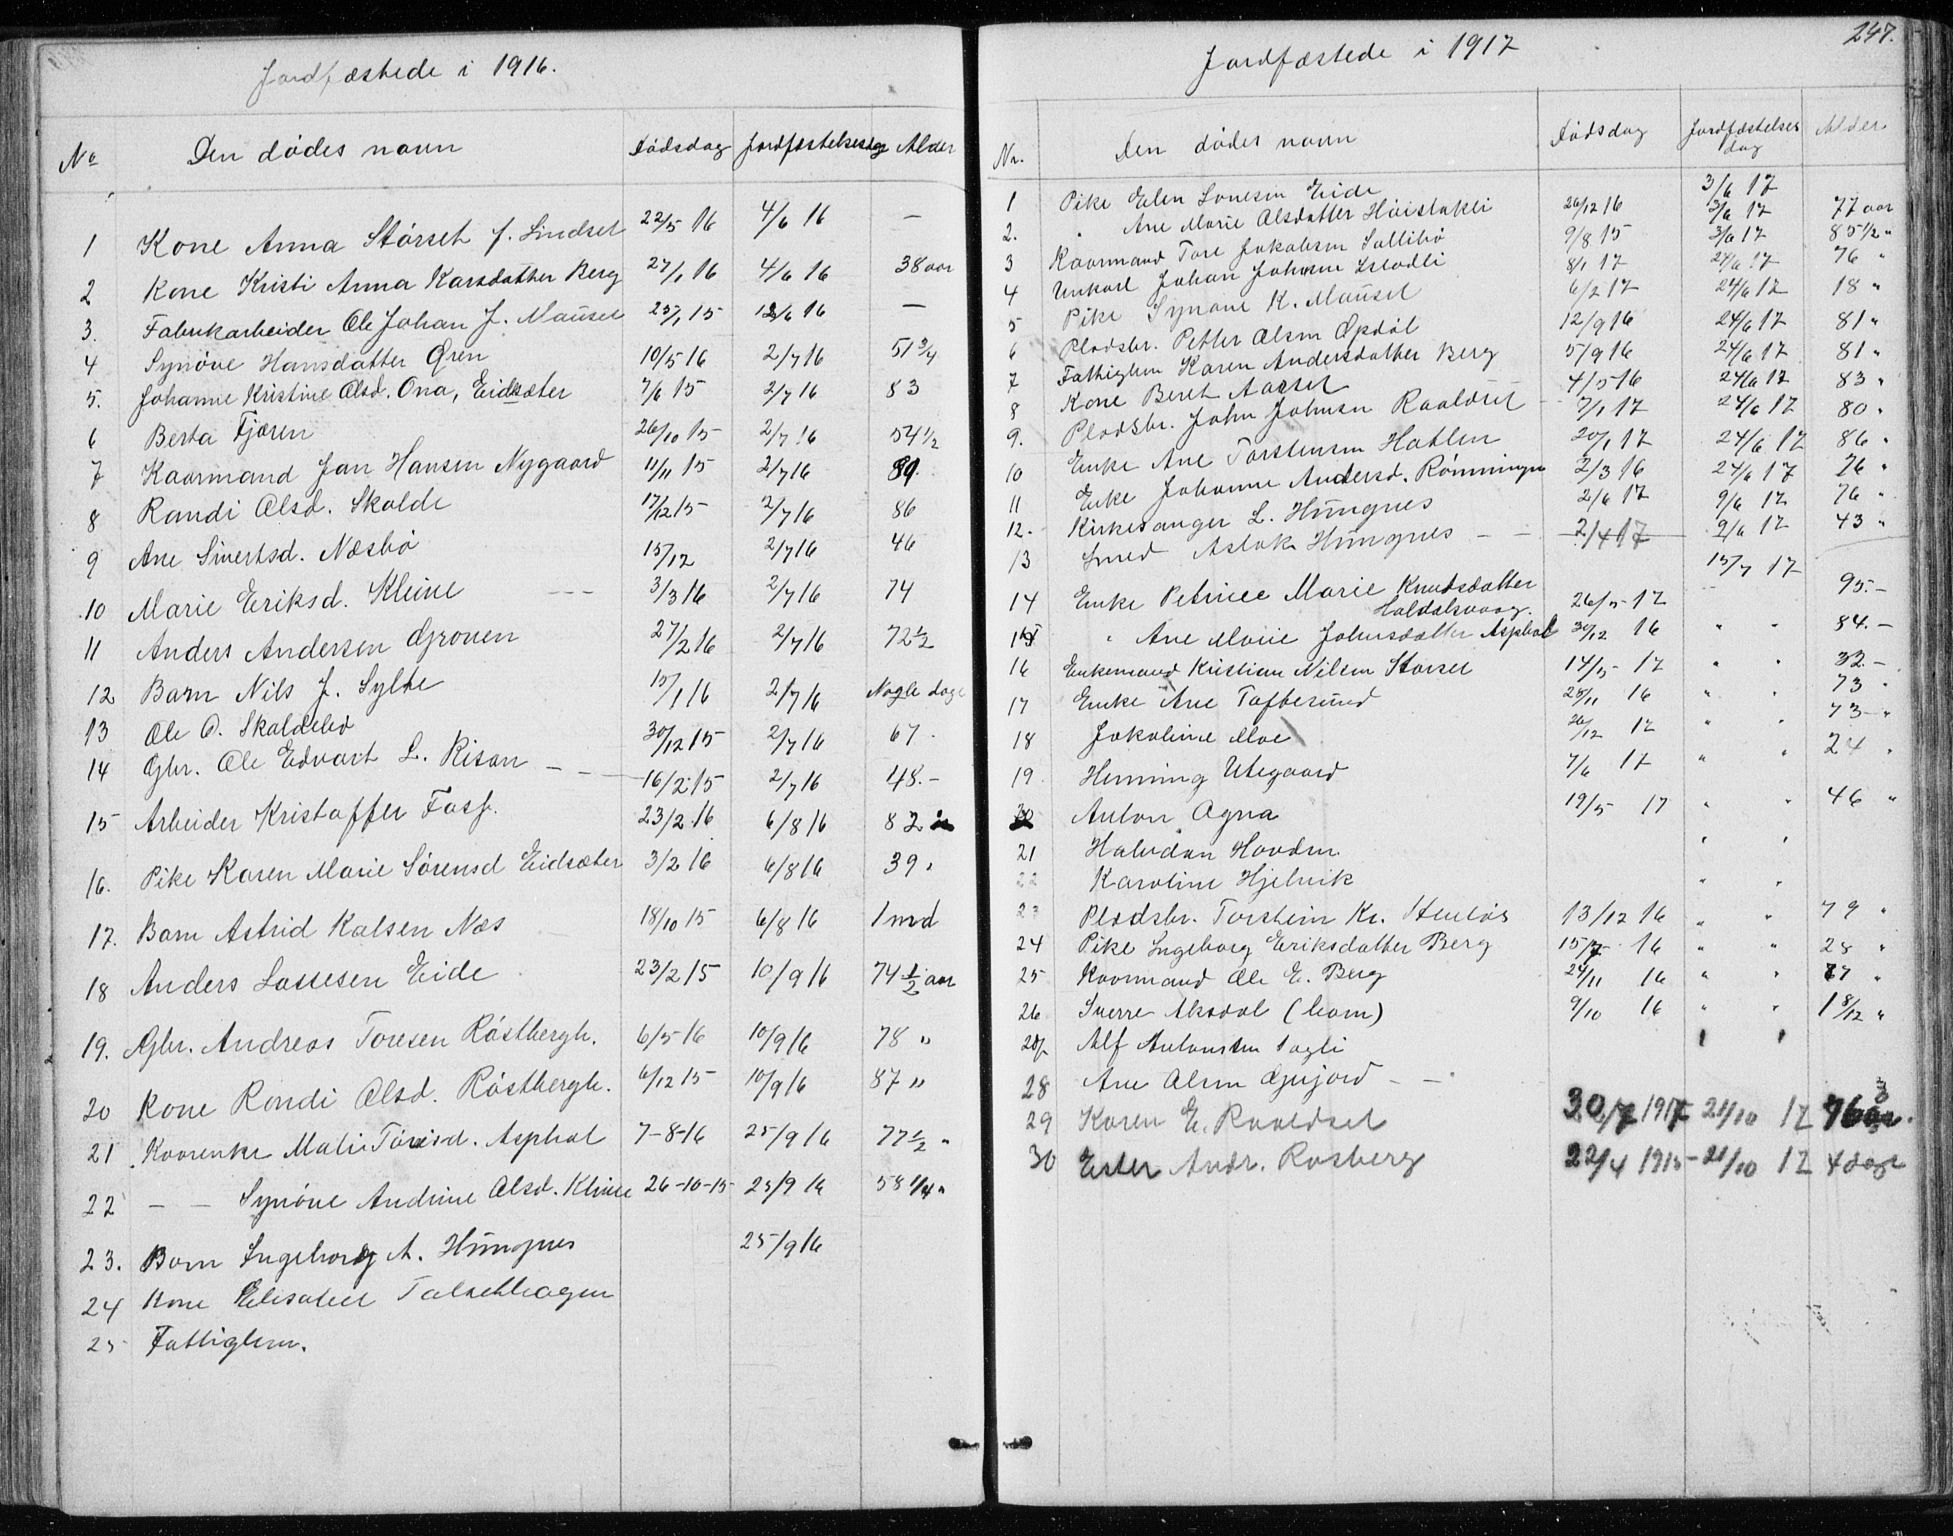 Jordfæstede i 1916.
No Den dødes navn Dødsdag Jordfæstelsesdag Alder
1 Kone Anna Størset f. Lindset 22/5 16 4/6 16 —
2 Kone Kristi Anna Larsdatter Berg 27/1 16 4/6 16 38 aar
3. Fabrikarbeider Ole Johan J. Mauset 25/1 15 12/6 16 —
4 Synøve Hansdatter Øren 10/5 16 2/7 16 51 3/4
5. Johanne Kristine Olsd. Ona, Eidsæter 7/6 15 2/7 16 83
6 Berta Fjæren 26/10 15 2/7 16 54 1/2
7 Kaarmand Jan Hansen Nygaard 11/11 15 2/7 16 89
8 Randi Olsd. Skalde 17/12 15 2/7 16 86
9 Ane Sivertsd. Næsbø 15/12 2/7 16 46
10 Marie Eriksd. Kleive --- 3/3 16 2/7 16 74
11 Anders Andersen Gronen 27/2 16 2/7 16 72 1/2
12 Barn Nils J. Sylte 15/1 16 2/7 16 Nogle dage
13 Ole O. Skaldebø 30/12 15 2/7 16 67.
14 Gbr. Ole Edvart L. Risan — — 16/2 15 2/7 16 48.–
15 Arbeider Kristoffer 23/2 16 6/8 16 82
16. Pike Karen Marie Sørensd Eidsæter 3/2 16 6/8 16 39 "
17. Barn Astrid Kalsen Næs 18/10 15 6/8 16 1 mnd
18 Anders Lassesen Eide 23/2 15 10/9 16 74 1/2 aar
19. Gbr. Andreas Toresen Røstbergh. 6/5 16 10/9 16 78 "
20 Kone Randi Olsd. Røstbergh. 6/12 15 10/9 16 87 "
21 Kaarenke Mali Toresd. Asphol 7-8-16 25/9 16 77 1/2 "
22 — — Synøve Andrine Olsd. Kleive 26-10-15 25/9 16 58 1/4 "
23. Barn Ingeborg A. Hungnes 25/9 16
24 Kone Elisabet
25 Fattiglem.
247.
Jordfæstede i 1917
Nr. Den dødes navn Dødsdag Jordfæstelses dag Alder
1 Pike Elen Eide 26/12 16 3/6 17 77 aar
2. " Ane Marie Olsdatter Høistakli 9/8 15 3/6 17 85 1/2 "
3 Kaarmand Tore Jakobsen Sollibø 8/1 17 3/6 17 76 "
4 Unkarl Johan Johnsen 6/2 17 24/6 17 18 "
5 Pike Synøve K. Mauset 12/9 16 24/6 17 81 "
6 Pladsbr. Petter Olsen Opdøl 5/9 16 24/6 17 81 "
7 Fattiglem Karen Andersdatter Berg 4/5 16 24/6 17 83 "
8 Kone Beret Aasset 7/1 17 24/6 17 80 "
9. Pladsbr. John Johnsen Raaldset 20/1 17 24/6 17 86 "
10 Enke Ane Torstensen Hatlen 2/3 16 24/6 17 76 "
11 Enke Johanne Andersd. Rønningen 2/6 17 9/6 17 76 "
12. Kirkesanger L. Hungnes 2/4 17 9/6 17 43 "
13 Smed Aslak Hungnes — — 15/7 17
14 Enke Petrice Marie Knudsdatter Haldalsvaag. 26/5 17 95.–
15 " Ane Marie Johnsdatter Asphol 30/12 16 " " 84.–
16 Enkemand Kristian Nilsen Størset 14/5 17 " " 32.–
17 Enke Ane Taftesund 25/11 16 " " 73 "
18 Jakobine Moe 26/12 17 " " 73 "
19 Henning Utegaard 7/6 17 " " 24 "
20 Anton Ogna 19/5 17 " " 46 "
21 Halvdan Hovden " "
22 Karoline Hjelvik " "
23 Pladsbr. Torstein Kr. Stenløs 13/12 16 " " 79 "
24 Pike Ingeborg Eriksdatter Berg 15/7 16 " " 28 "
25 Kaarmand Ole E. Berg 24/11 16 " " 77 "
26 Sverre Aksdal (barn) 9/10 16 " " 1 8/12 "
27 Alf " "
28 Ane Olsen Gujord — —
29 Karen E. Raaldset 30/7 1917 21/10 17 76
30 Ester Andr. Rosberg 22/4 1915 – 21/10 17 4 dage